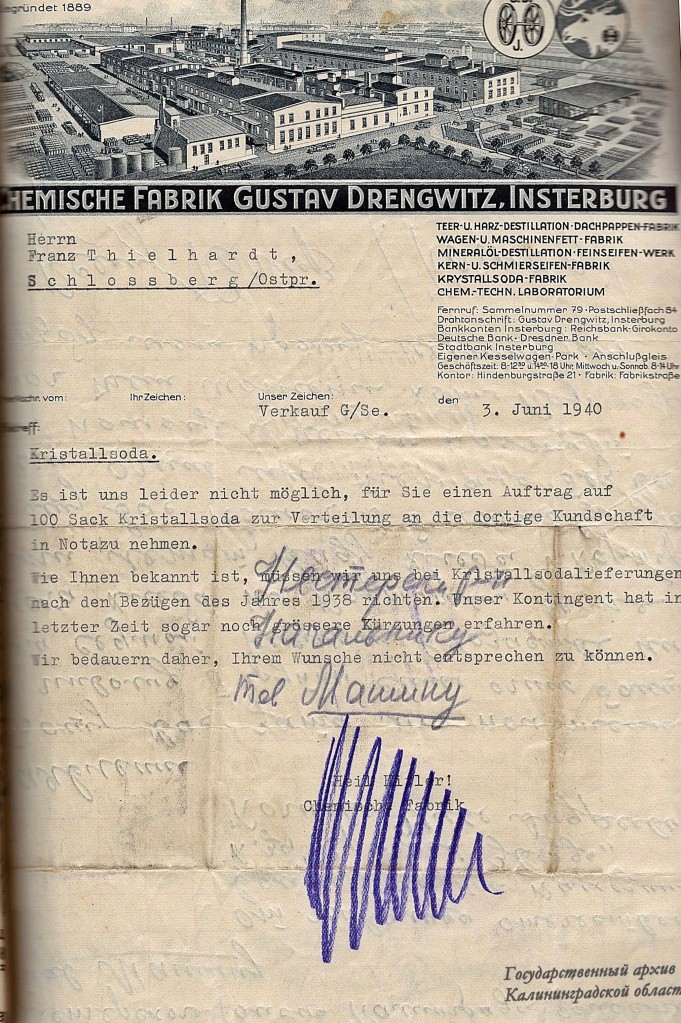 egründet 1889
J.
CHEMISCHE FABRIK GUSTAV DRENGWITZ, INSTERBURG
TEER-U. HARZ-DESTILLATION · DACHPAPPEN-FABRIK
WAGEN-U. MASCHINENFETT-FABRIK
MINERALÖL-DESTILLATION · FEINSEIFEN-WERK
KERN-U. SCHMIERSEIFEN-FABRIK
KRYSTALLSODA-FABRIK
CHEM.-TECHN. LABORATORIUM
Herrn
Franz Thielhardt,
Schlossberg/Ostpr.
Fernruf: Sammelnummer 79 · Postschließfach 84
Drahtanschrift: Gustav Drengwitz, Insterburg
Bankkonten Insterburg: Reichsbank-Girokonto
Deutsche Bank · Dresdner Bank
Stadtbank Insterburg
Eigener Kesselwagen-Park · Anschlußgleis
Geschäftszeit: 8-12³⁰ u. 14³⁰-18 Uhr; Mittwoch u. Sonnab. 8-14 Uhr
Kontor: Hindenburgstraße 21 · Fabrik: Fabrikstraße
vom: Ihr Zeichen: Unser Zeichen: den
Verkauf G/Se. 3. Juni 1940
Kristallsoda.
Es ist uns leider nicht möglich, für Sie einen Auftrag auf
100 Sack Kristallsoda zur Verteilung an die dortige Kundschaft
in Notazu nehmen.
Wie Ihnen bekannt ist, müssen wir uns bei Kristallsodalieferungen
nach den Bezügen des Jahres 1938 richten. Unser Kontingent hat in
letzter Zeit sogar noch grössere Kürzungen erfahren.
Wir bedauern daher, Ihrem Wunsche nicht entsprechen zu können.
Начальнику
Машину
Heil Hitler!
Chemische Fabrik
Государственный архив
Калининградской област